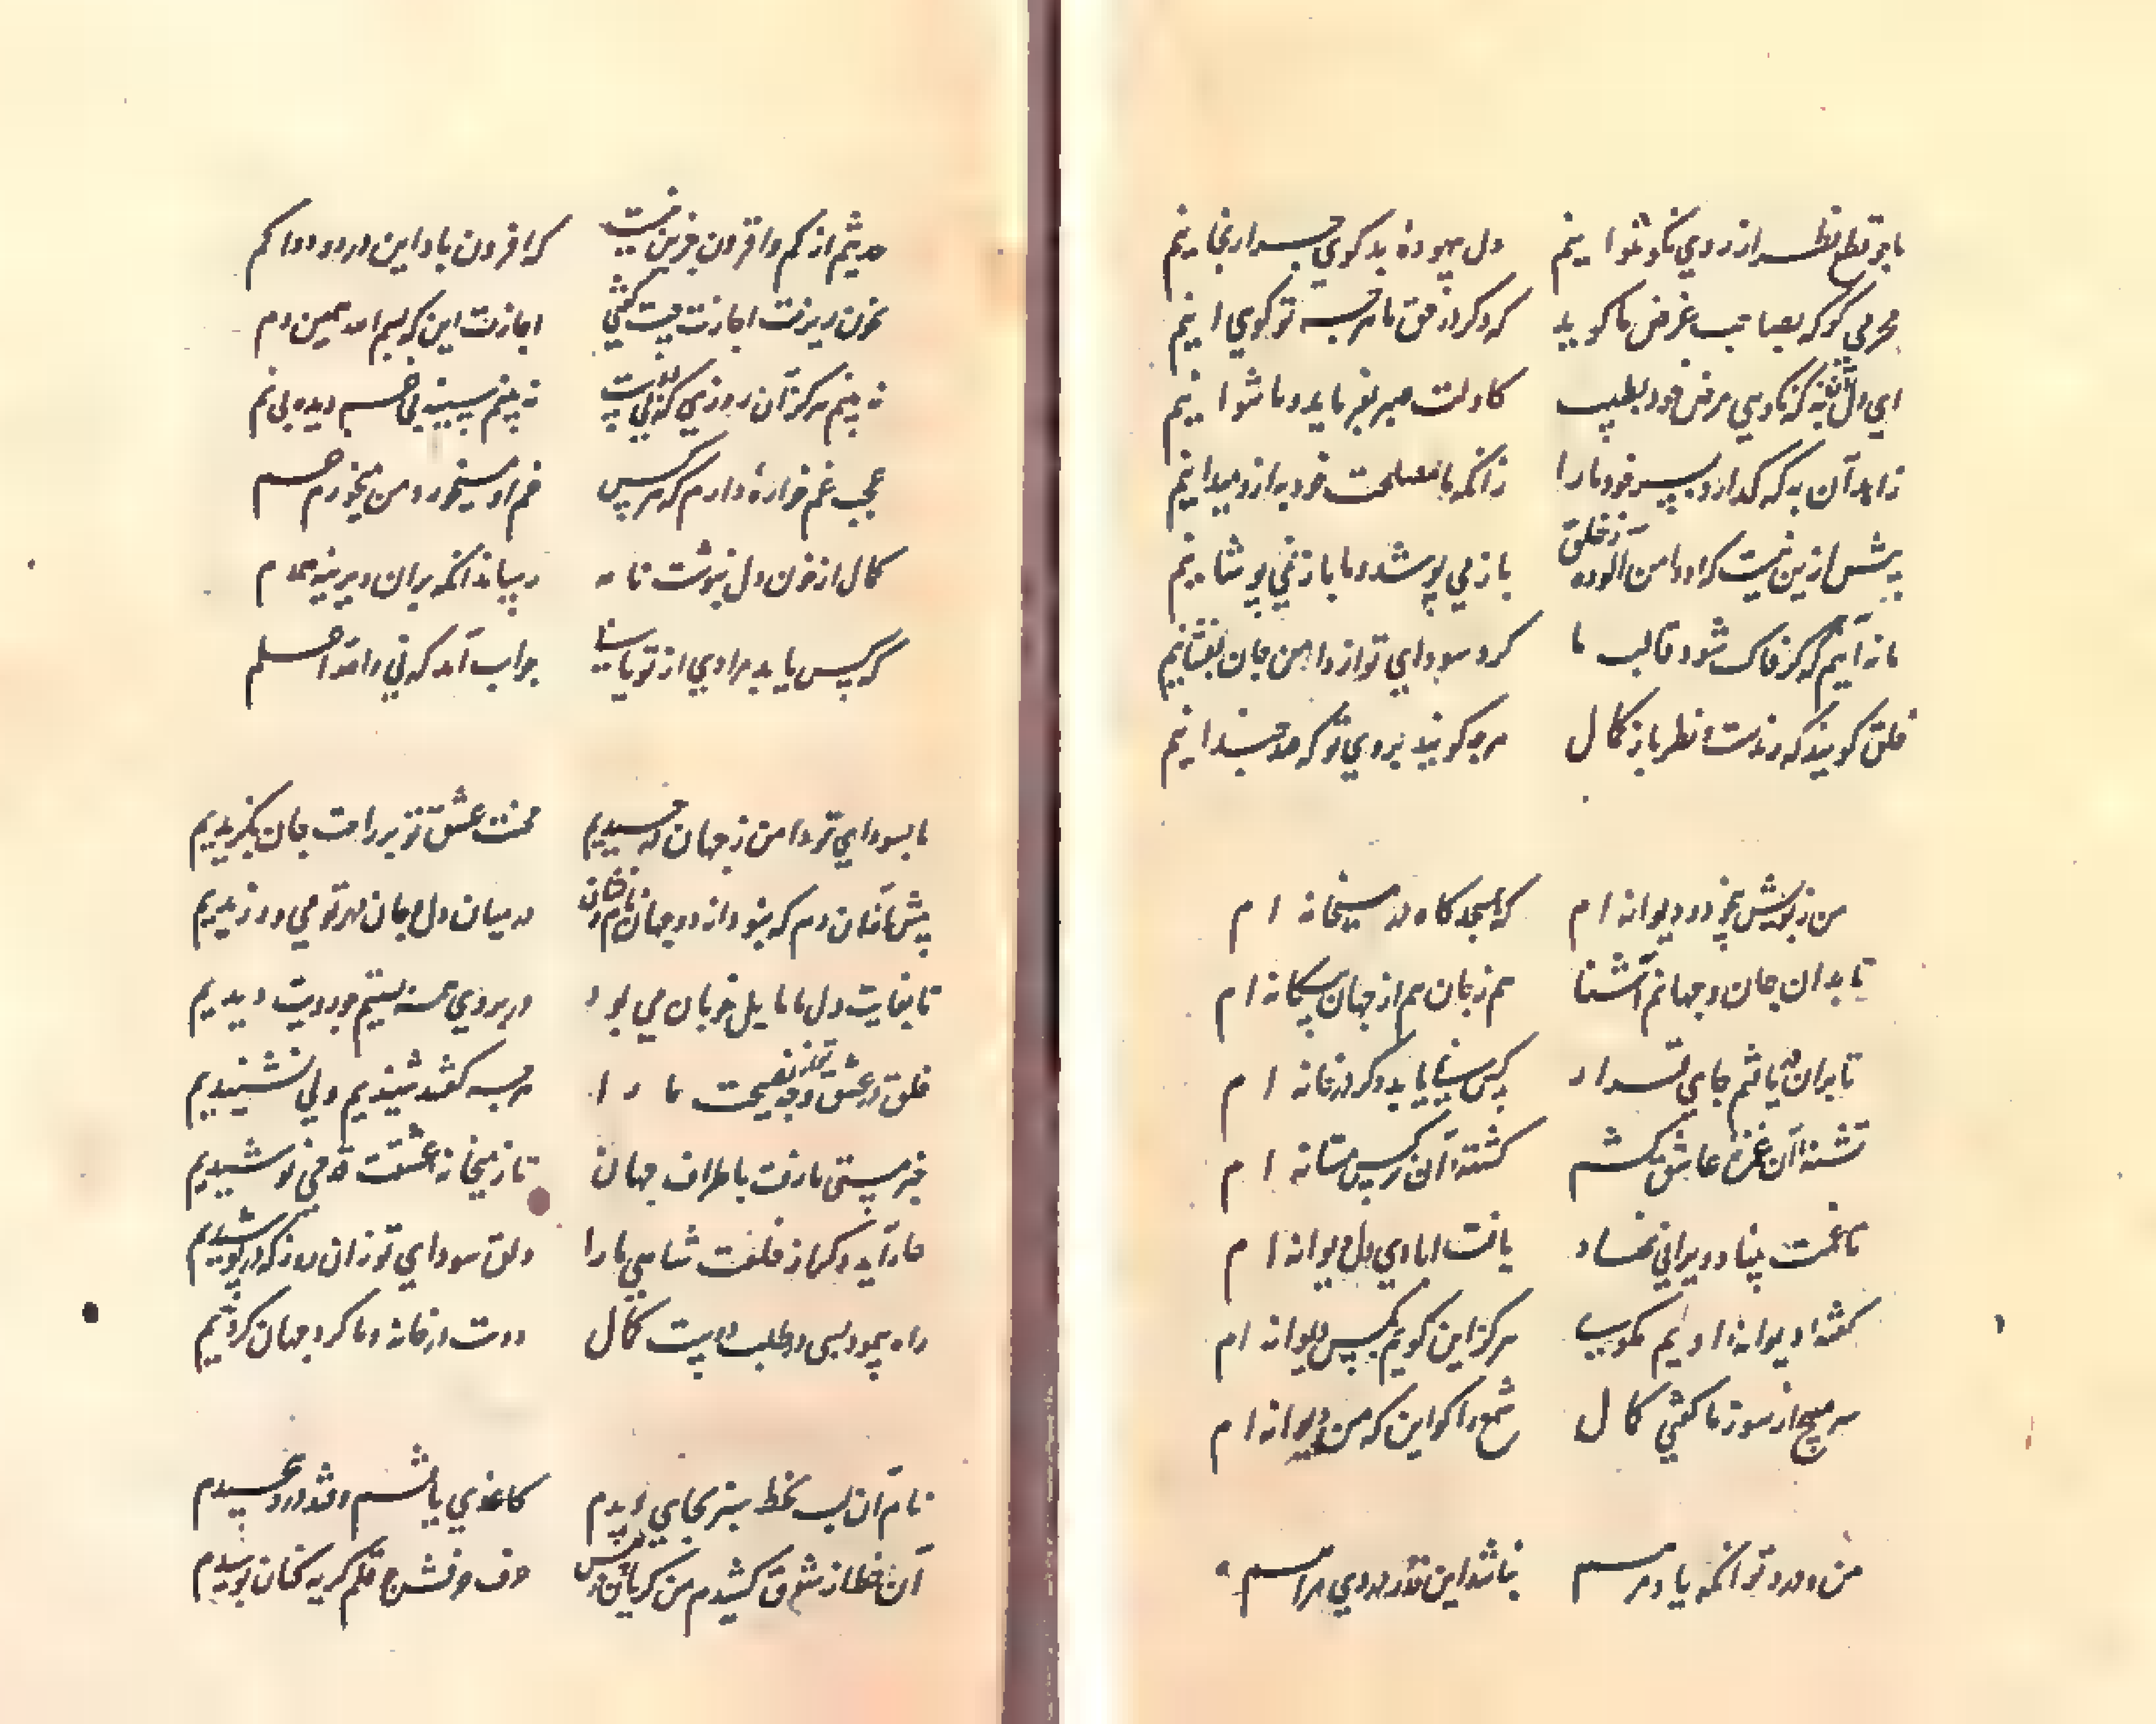 ما جو قطع نظر از روی نکو نتوانیم
دل بیهوده بدگوی چرا رنجانیم
محرمی کو که بصاحب غرض ما گوید
که دگر در حق ما هرچه تو گویی آنیم
ای دل آن به که نگویی مرض خود بطبیب
کاولت صبر بفرماید و ما نتوانیم
زاهد آن به که گذارد بسر خود ما را
زانکه ما مصلحت خود به ازو میدانیم
بیش ازین نیست که او دامن آلوده ز خلق
باز می پوشد و ما باز نمی پوشانیم
ما نه آنیم که گر خاک شود قالب ما
گرد سودای تو از دامن جان بفشانیم
خلق گویند که رندست و نظرباز کمال
هرچه گویند بروی تو که صد چندانیم
من ز بویش بیخود و دیوانه ام
که بمسجد گاه در میخانه ام
تا بدان جان و جهانم آشنا
هم ز جان هم از جهان بیگانه ام
تا بران در یافتم جای قرار
کس نیابد دگر در خانه ام
تشنه آن غمزه عاشق کشم
کشته آن نرگس مستانه ام
تا غمت بنیاد ویرانی نهاد
یافت آبادی دل ویرانه ام
گفته دیوانه اویم مگوی
هرگز این گویم بکس دیوانه ام
سر مپیچ از سوز ما گفتی کمال
شمع را گو این که من پروانه ام
من و درد تو آنکه یاد مرهم
نباشد این قدر دردی مرا هم
حدیثم از کم و افزون جزین نیست
که افزون باد این درد و دوا کم
بخون ریزت اجازت چیست گفتی
اجازت این که بسم الله همین دم
نه بینم هرگز آن روزی که بی تست
نه بینم سینه بی غم دیده بی نم
عجب غم خواره دارم که هر کس
غم او میخورد من میخورم غم
کمال از خون دل بنوشت نامه
رسانید آنکه بران دیرینه همدم
که کس یابد مرادی از تو یا نی
جواب آمد که نی والله اعلم
ما بسودای تو دامن ز جهان در چیدیم
محنت عشق تو بر راحت جان بگزیدیم
پیش ما آن دم که نبود از دو جهان نام و نشان
در میان دل و جان مهر تو می ورزیدیم
تا بغایت دل ما مایل خوبان می بود
در بروی همه بستیم چو رویت دیدیم
خلق در عشق تو چندان نصیحت ما را
هرچه گفتند شنیدیم ولی نشنیدیم
خبر مستی ما رفت باطراف جهان
تا ز میخانه عشقت قدحی نوشیدیم
عار آید دگر از خلعت شاهی ما را
دلق سودای تو زان روز که در پوشیدیم
راه پیمود بسی در طلب دوست کمال
دوست در خانه و ما گرد جهان گردیدیم
نام آن لب بخط سبز بجایی دیدم
کاغذی یافتم و قند درو پیچیدم